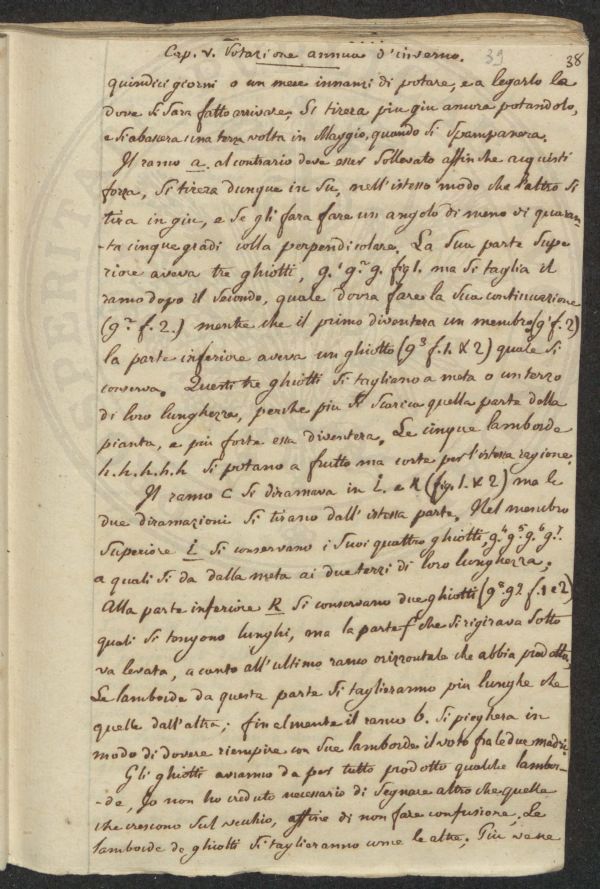 Cap. v. Potazione annua d'inverno. 39 38
quindici giorni o un mese innanzi di potare, e a legarlo la
dove si sara fatto arrivare. Si tirera piu giu ancora potandolo,
e si abassera una terza volta in Maggio, quando si spampanera.
Il ramo a. al contrario deve esser sollevato affinche acquisti
forza, si tirera dunque in su, nell'istesso modo che l'altro si
tira in giu, e se gli fara fare un angolo di meno di quaran-
-ta cinque gradi colla perpendicolare. La sua parte supe
riore aveva tre ghiotti, g.¹ g.² g. fig 1. ma si taglia il
ramo dopo il secondo, quale dovra fare la sua continuazione
(g.² f. 2.) mentre che il primo diventera un membro (g¹ f. 2)
la parte inferiore aveva un ghiotto (g³ f. 1. & 2) quale si
conserva. Questi tre ghiotti si tagliano a meta o un terzo
di loro lunghezza, perche piu si scarica quella parte della
pianta, e piu forte essa diventera. Le cinque lamborde
h. h. h. h. h si potano a frutto ma corte per l'istessa ragione.
Il ramo C si diramava in i. e K (fig. 1. & 2) ma le
due diramazioni si tirano dall'istessa parte. Nel membro
superiore i si conservano i suoi quattro ghiotti, g.⁴ g.⁵ g.⁶ g.⁷.
a quali si da dalla meta ai due terzi di loro lunghezza.
Alla parte inferiore K si conservano due ghiotti (g⁸ g⁹. f. 1 e 2)
quali si tengono lunghi, ma la parte f che si rigirava sotto
va levata, a canto all'ultimo ramo orizzontale che abbia prodotto.
Le lamborde da questa parte si taglieranno piu lunghe che
quelle dall'altra; finalmente il ramo b. si pieghera in
modo di dovere riempire con sue lamborde il voto fra le due madri.
Gli ghiotti avranno da per tutto prodotto qualche lambor-
-de, Io non ho creduto necessario di segnare altro che quelle
che crescono sul vecchio, affine di non fare confusione. Le
lamborde de ghiotti si taglieranno come le altre, Piu ve ne